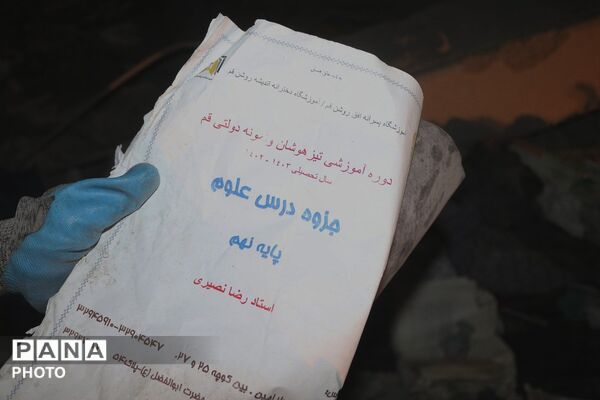 آموزشگاه پسرانه افق روشن قم / آموزشگاه دخترانه اندیشه روشن قم
دوره آموزشی تیزهوشان و نمونه دولتی قم
سال تحصیلی ۱۴۰۳ - ۱۴۰۲
جزوه درس علوم
پایه نهم
استاد رضا نصیری
۳۲۹۴۵۹۱۰-۳۲۹۰۴۵۴۷
بین کوچه ۲۵ و ۲۷.
حضرت ابوالفضل (ع)-پلاک
PANA
PHOTO